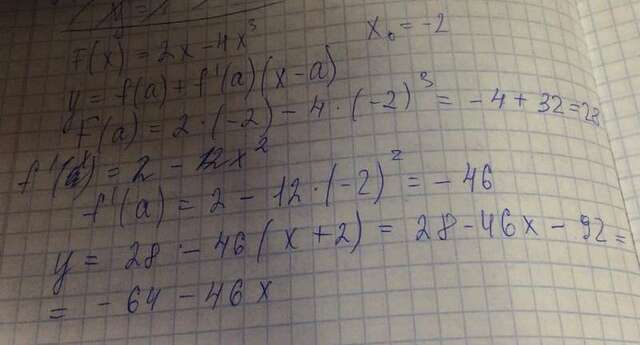 F(x) = 2x - 4x³ x₀ = -2
y = f(a) + f'(a)(x-a)
F(a) = 2·(-2) - 4·(-2)³ = -4 + 32 = 28
f'(a) = 2 - 12x²
f'(a) = 2 - 12·(-2)² = -46
y = 28 - 46(x+2) = 28 - 46x - 92 =
= -64 - 46x